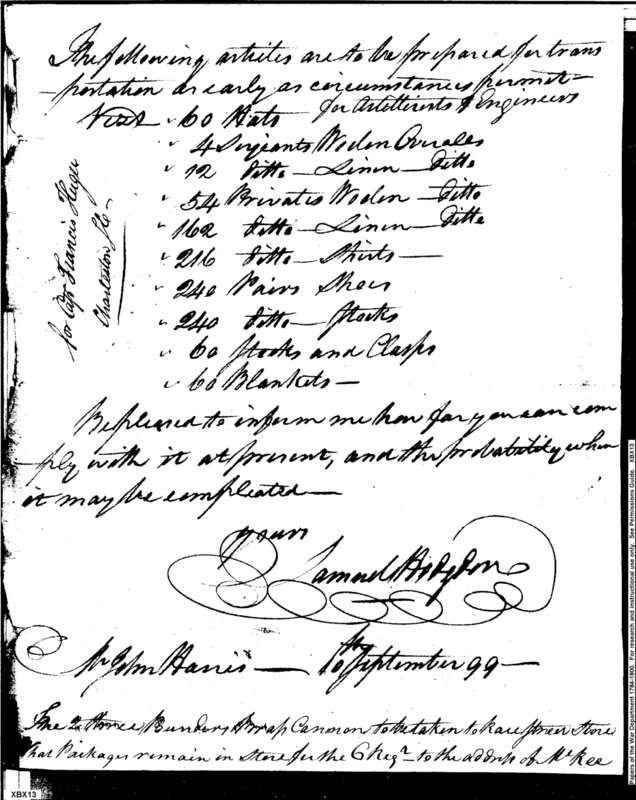 The following articles are to be prepared for trans
-portation as early as circumstances permit-
Vizt " 60 Hats for Artillerists & Engineers
" 4 Serjeants Wolen Overales
" 12 ditto - Linen - ditto
" 54 Privates Wolen - ditto
" 162 ditto - Linen - ditto
" 216 ditto - Shirts -
" 240 Pairs Shoes
" 240 ditto - Socks
" 60 Stocks and Clasps
" 60 Blankets -
for Capt Francis Huger
Charleston So.
Be pleased to inform me how far you can com
-ply with it at present, and the probability when
it may be compleated -
yours
Samuel Hodgdon
Mr John Harris - 10th September 99 -
The 2 three Brass Cannon to be taken to Race Street Store
that Packages remain in Store for the 6 Regt to the address of McKee
XBX13
Papers of the War Department 1784-1800. For research and instructional use only. See Permissions Guide. XBX13